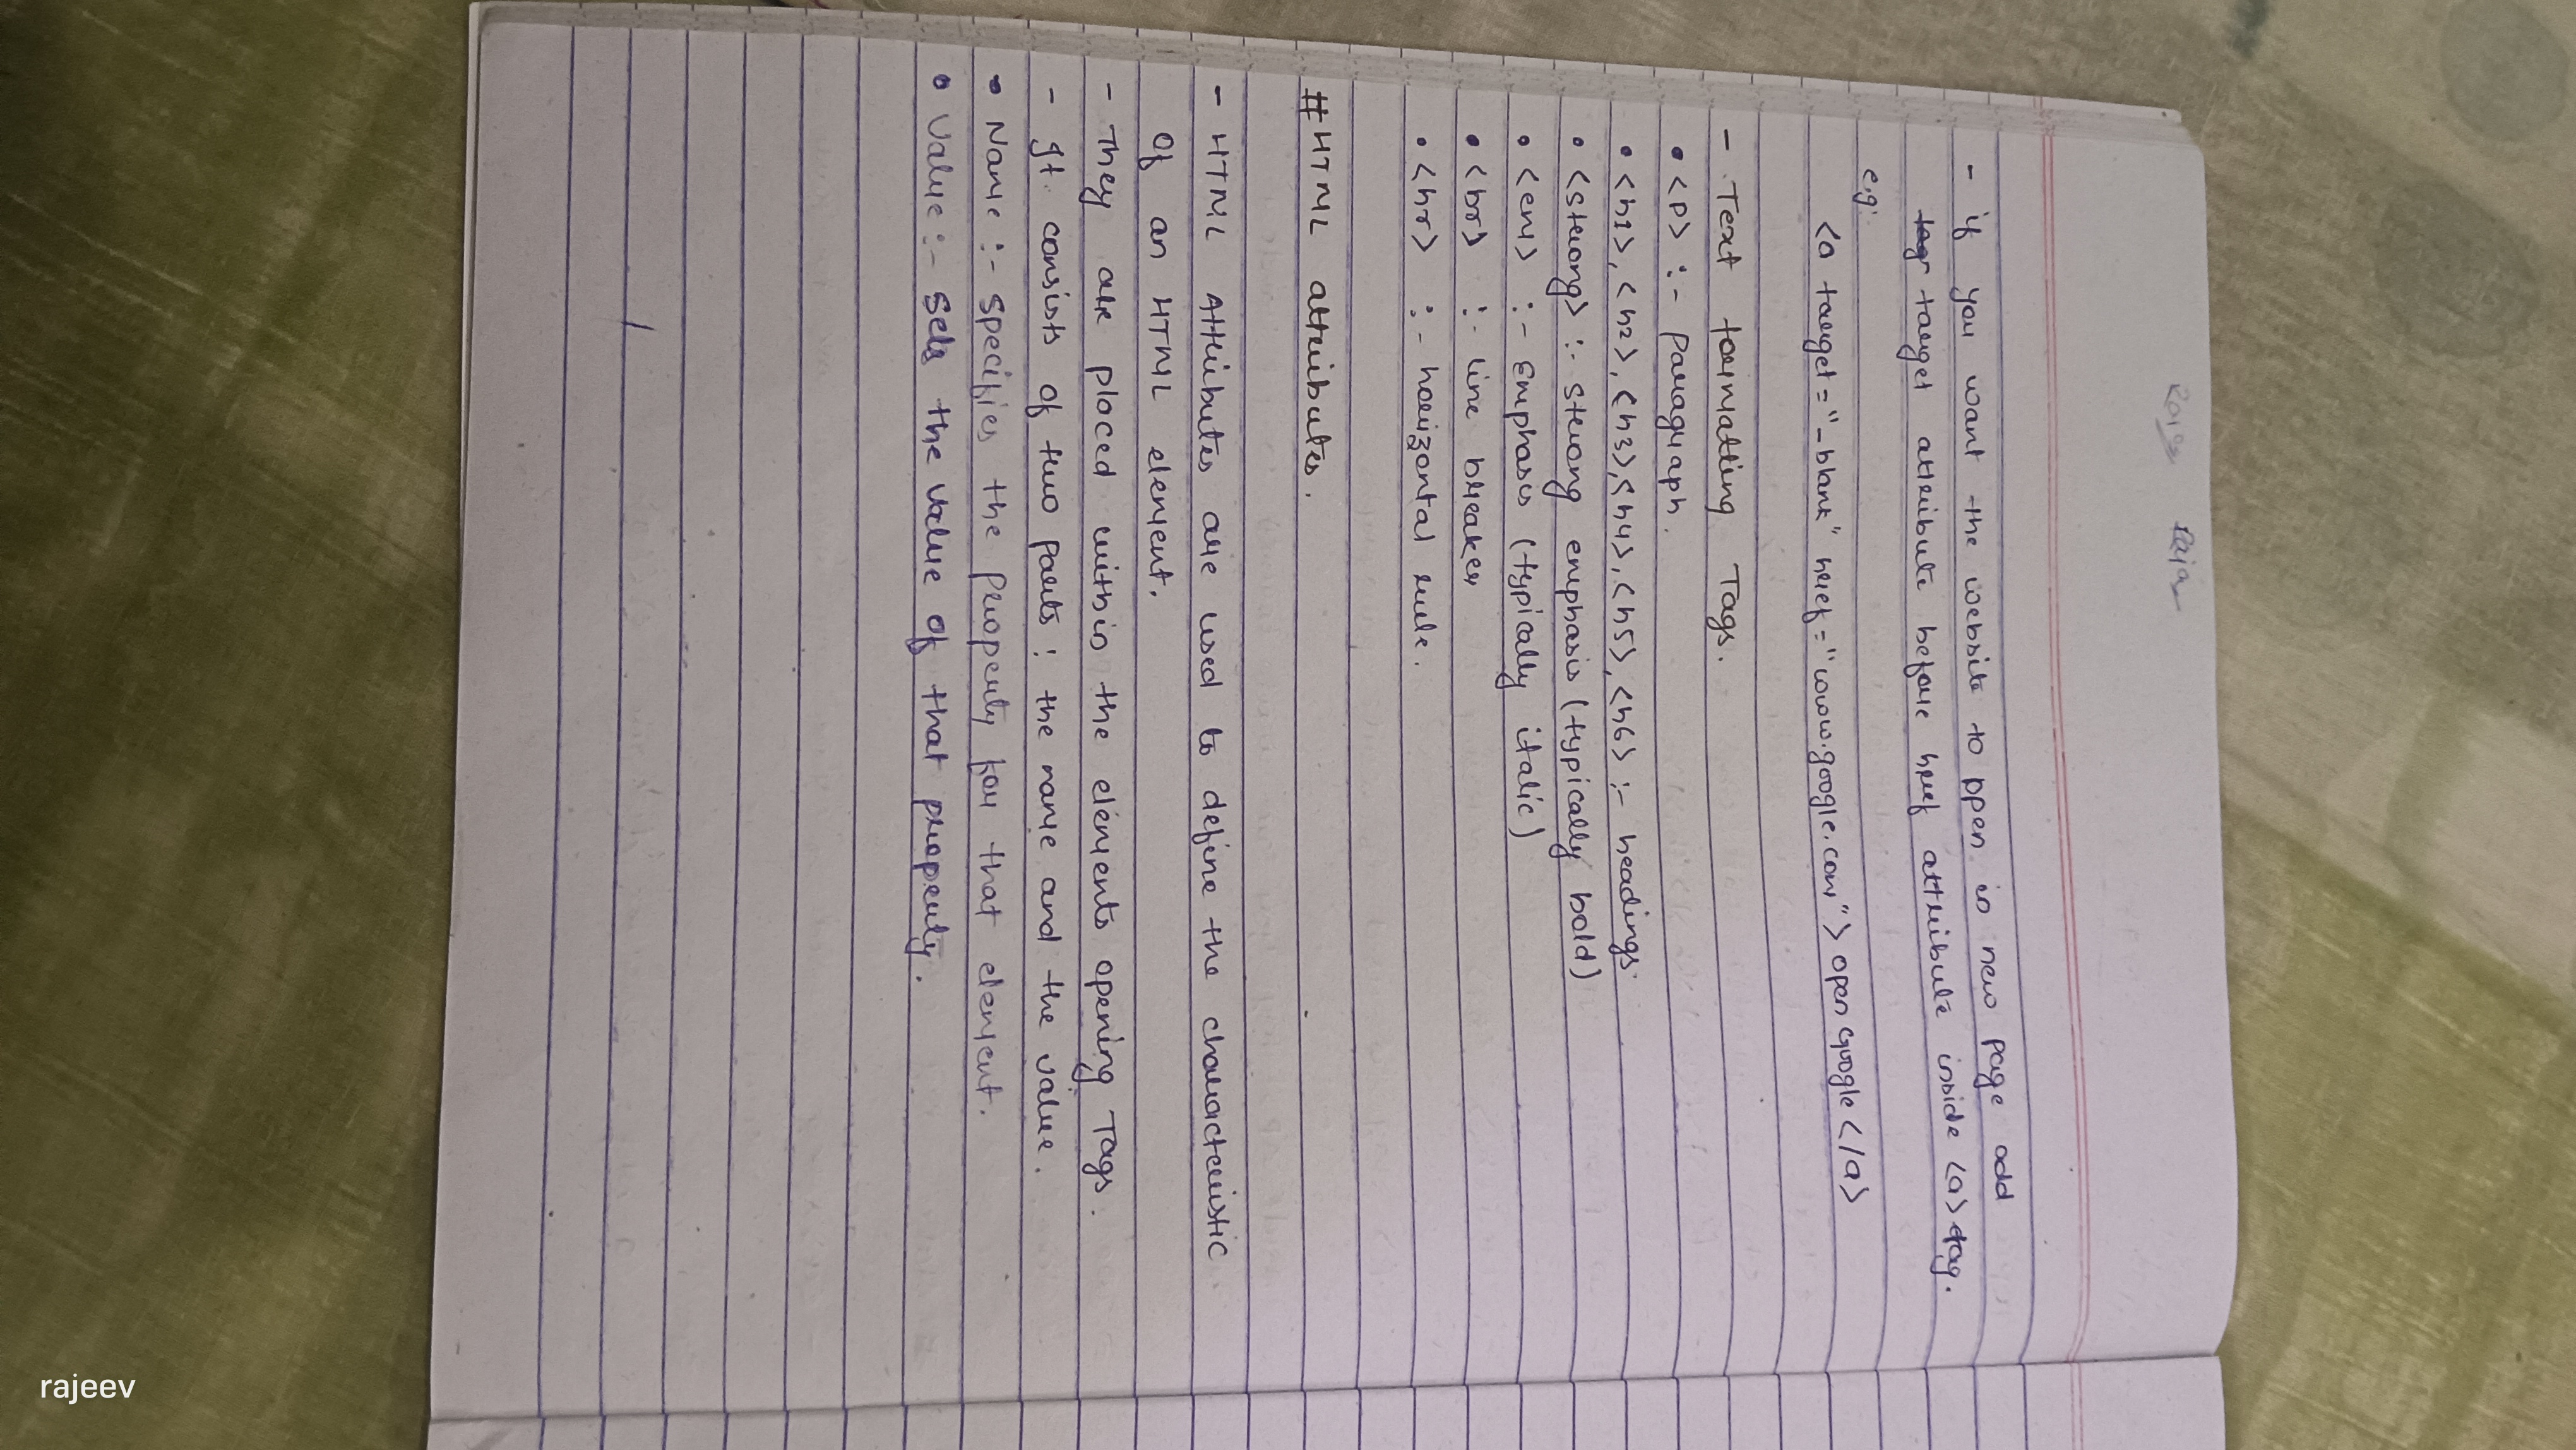 Raja Raja
- if you want the website to open in new page add
tag target attribute before href attribute inside <a> tag.
e.g:
<a target="_blank" href="www.google.com"> open Google </a>
- Text formatting Tags.
• <p> :- paragraph.
• <h1>, <h2>, <h3>, <h4>, <h5>, <h6> :- headings.
• <strong> :- strong emphasis (typically bold)
• <em> :- Emphasis (typically italic)
• <br> :- line breaker
• <hr> :- horizontal rule.
# HTML attributes.
- HTML Attributes are used to define the characteristic
of an HTML element.
- They are placed within the elements opening Tags.
- It consists of two parts : the name and the value.
• Name :- specifies the property for that element.
• Value :- Sets the value of that property.
rajeev